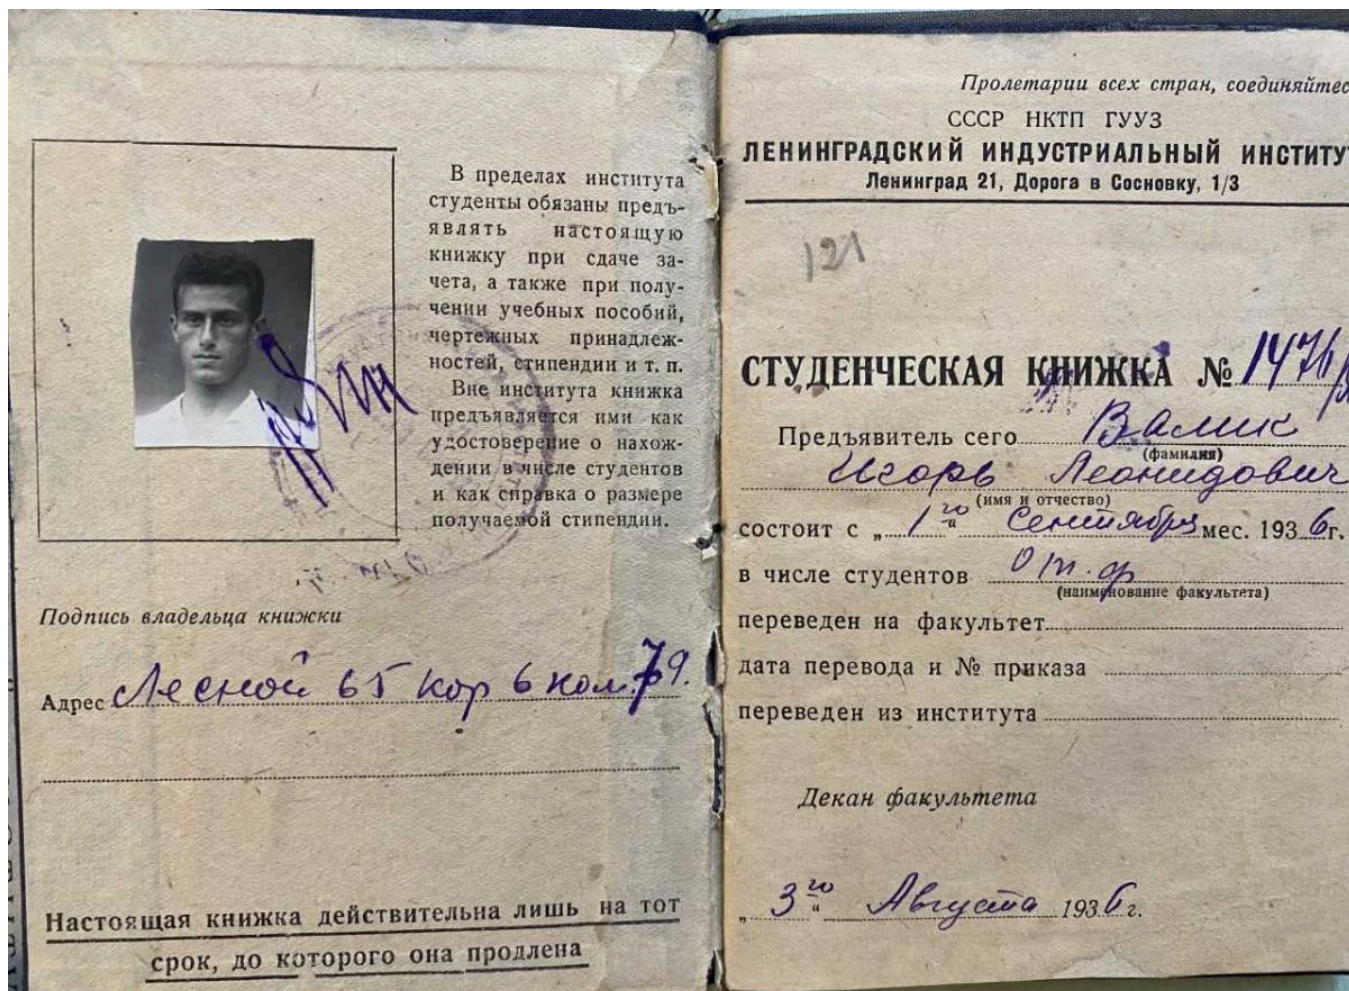 В пределах института
студенты обязаны предъ-
являть настоящую
книжку при сдаче за-
чета, а также при полу-
чении учебных пособий,
чертежных принадлеж-
ностей, стипендии и т. п.
Вне института книжка
предъявляется ими как
удостоверение о нахож-
дении в числе студентов
и как справка о размере
получаемой стипендии.
Подпись владельца книжки
Адрес Лесной 65 кор 6 ком. 79.
Настоящая книжка действительна лишь на тот
срок, до которого она продлена
Пролетарии всех стран, соединяйтес
СССР НКТП ГУУЗ
ЛЕНИНГРАДСКИЙ ИНДУСТРИАЛЬНЫЙ ИНСТИТУТ
Ленинград 21, Дорога в Сосновку, 1/3
121
СТУДЕНЧЕСКАЯ КНИЖКА № 1476
Предъявитель сего Валик
(фамилия)
Игорь Леонидович
(имя и отчество)
состоит с „1го“ Сентября мес. 1936 г.
в числе студентов От. ф
(наименование факультета)
переведен на факультет
дата перевода и № приказа
переведен из института
Декан факультета
„3го“ Августа 1936 г.